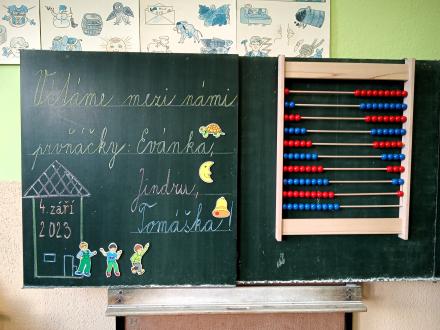 Vítáme mezi námi
prvňáčky: Evánka,
Jindru,
Tomáška!
4. září
2023